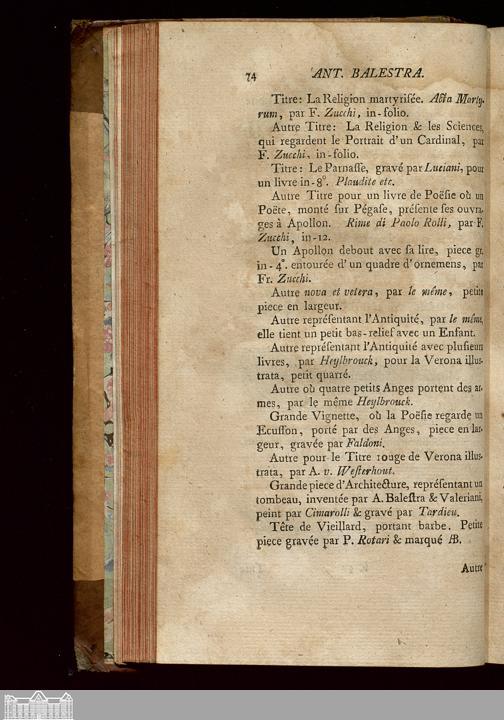 74 ANT. BALESTRA.
Titre: La Religion martyrisée. Acta Marty-
rum, par F. Zucchi, in-folio.
Autre Titre: La Religion & les Sciences,
qui regardent le Portrait d'un Cardinal, par
F. Zucchi, in-folio.
Titre: Le Parnasse, gravé par Luciani, pour
un livre in-8°. Plaudite etc.
Autre Titre pour un livre de Poësie où un
Poëte, monté sur Pégase, présente ses ouvra-
ges à Apollon. Rime di Paolo Rolli, par F.
Zucchi, in-12.
Un Apollon debout avec sa lire, piece gr.
in-4°. entourée d'un quadre d'ornemens, par
Fr. Zucchi.
Autre nova et vetera, par le même, petite
piece en largeur.
Autre représentant l'Antiquité, par le même,
elle tient un petit bas-relief avec un Enfant.
Autre représentant l'Antiquité avec plusieurs
livres, par Heylbrouck, pour la Verona illus-
trata, petit quarré.
Autre où quatre petits Anges portent des ar-
mes, par le même Heylbrouck.
Grande Vignette, où la Poësie regarde un
Ecusson, porté par des Anges, piece en lar-
geur, gravée par Faldoni.
Autre pour le Titre rouge de Verona illus-
trata, par A. v. Westerhout.
Grande piece d'Architecture, représentant un
tombeau, inventée par A. Balestra & Valeriani,
peint par Cimarolli & gravé par Tardieu.
Tête de Vieillard, portant barbe. Petite
piece gravée par P. Rotari & marqué AB.
Autre